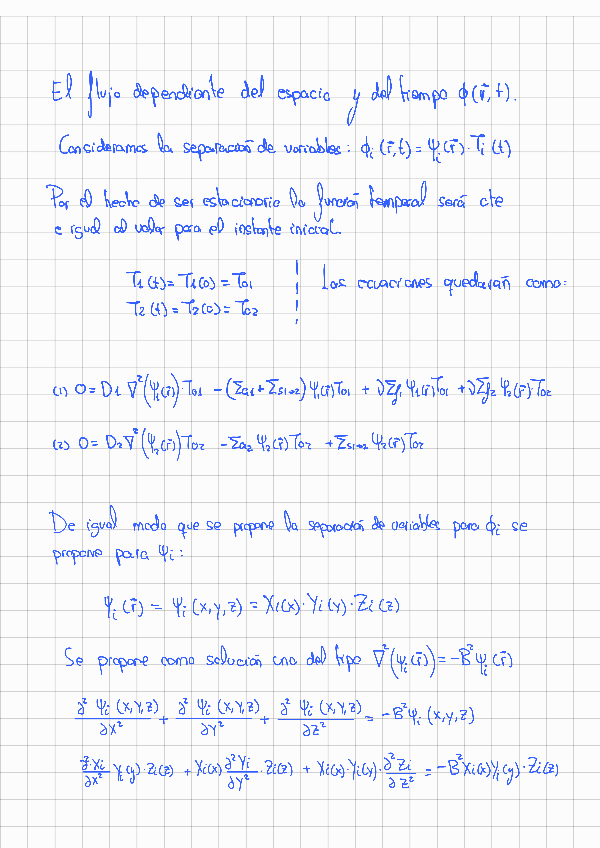 El flujo dependiente del espacio y del tiempo ϕ(r̄,t).
Consideramos la separación de variables: ϕi(r̄,t) = ψi(r̄)·Ti(t)
Por el hecho de ser estacionario la función temporal será cte
e igual al valor para el instante inicial.
T1(t) = T1(0) = T01 | Las ecuaciones quedarán como:
T2(t) = T2(0) = T02
(1) 0 = D1 ∇²(ψ1(r̄))·T01 - (Σa1 + Σs1→2) ψ1(r̄)T01 + νΣf1 ψ1(r̄)T01 + νΣf2 ψ2(r̄)T02
(2) 0 = D2 ∇²(ψ2(r̄))T02 - Σa2 ψ2(r̄)T02 + Σs1→2 ψ2(r̄)T02
De igual modo que se propone la separación de variables para ϕi se
propone para ψi:
ψi(r̄) = ψi(x,y,z) = Xi(x)·Yi(y)·Zi(z)
Se propone como solución una del tipo ∇²(ψi(r̄)) = -B²ψi(r̄)
∂²ψi(x,y,z)/∂x² + ∂²ψi(x,y,z)/∂y² + ∂²ψi(x,y,z)/∂z² = -B²ψi(x,y,z)
∂²Xi/∂x² Yi(y)·Zi(z) + Xi(x) ∂²Yi/∂y² · Zi(z) + Xi(x)·Yi(y)· ∂²Zi/∂z² = -B²Xi(x)Yi(y)·Zi(z)